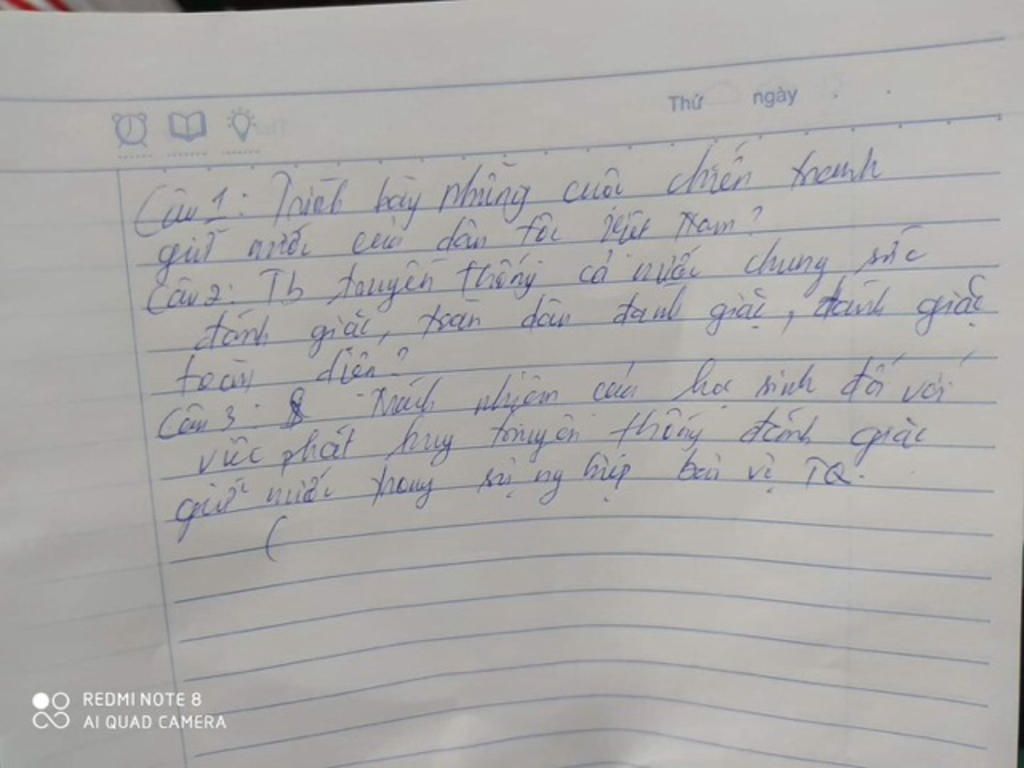 Thứ ngày
Câu 1: Trình bày những cuộc chiến tranh
giữ nước của dân tộc Việt Nam?
Câu 2: Tb truyền thống cả nước chung sức
đánh giặc, toàn dân đánh giặc, đánh giặc
toàn diện?
Câu 3: Trách nhiệm của học sinh đối với
việc phát huy truyền thống đánh giặc
giữ nước trong sự nghiệp bảo vệ TQ.
(
REDMI NOTE 8
AI QUAD CAMERA